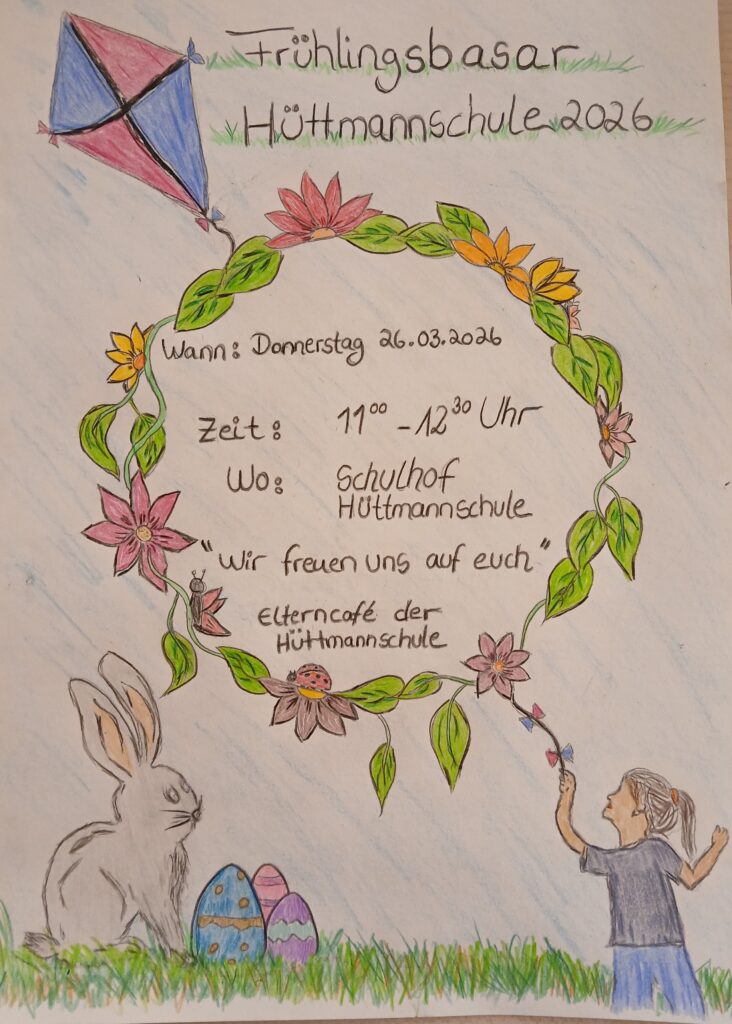 Frühlingsbasar
Hüttmannschule 2026
Wann: Donnerstag 26.03.2026
Zeit: 11⁰⁰ - 12³⁰ Uhr
Wo: Schulhof
Hüttmannschule
"Wir freuen uns auf euch"
Elterncafé der
Hüttmannschule